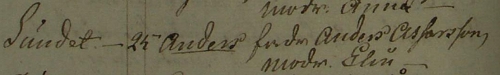 modr. Anna
Sundet — 25 Anders fadr Anders Assarsson,
modr. Elin —